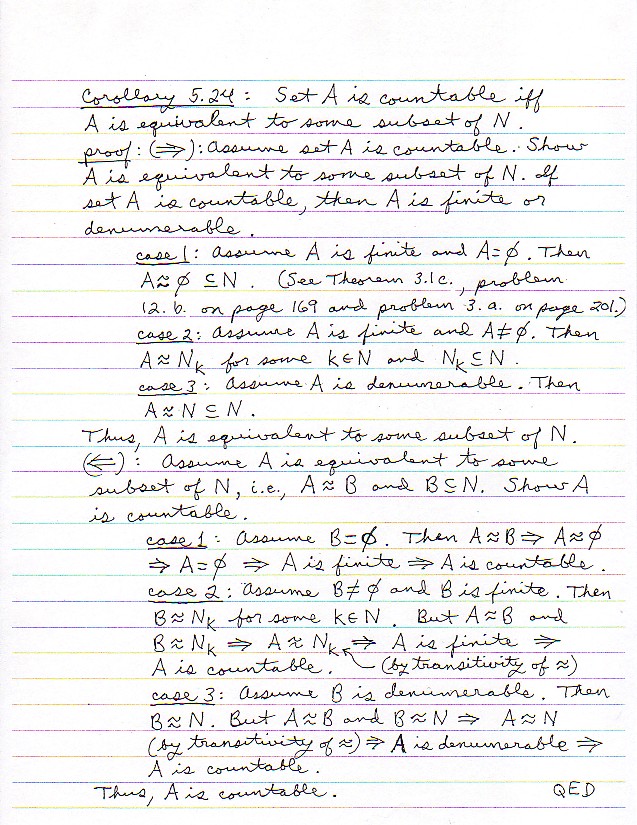 Corollary 5.24: Set A is countable iff
A is equivalent to some subset of N.
proof: (⇒): Assume set A is countable. Show
A is equivalent to some subset of N. If
set A is countable, then A is finite or
denumerable.
case 1: Assume A is finite and A=∅. Then
A≈∅ ⊆N. (See Theorem 3.1c., problem
12. b. on page 169 and problem 3. a. on page 201.)
case 2: Assume A is finite and A≠∅. Then
A≈N_k for some k∈N and N_k⊆N.
case 3: Assume A is denumerable. Then
A≈N⊆N.
Thus, A is equivalent to some subset of N.
(⇐): Assume A is equivalent to some
subset of N, i.e., A≈B and B⊆N. Show A
is countable.
case 1: Assume B=∅. Then A≈B⇒ A≈∅
⇒ A=∅ ⇒ A is finite ⇒ A is countable.
case 2: Assume B≠∅ and B is finite. Then
B≈N_k for some k∈N. But A≈B and
B≈N_k ⇒ A≈N_k ⇒ A is finite ⇒
A is countable. (by transitivity of ≈)
case 3: Assume B is denumerable. Then
B≈N. But A≈B and B≈N ⇒ A≈N
(by transitivity of ≈)⇒ A is denumerable ⇒
A is countable.
Thus, A is countable. QED